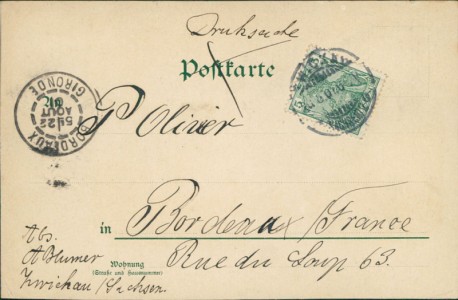 Drucksache
Postkarte
BORDEAUX
GIRONDE
5E 22
AOUT
P Olivier
in Bordeaux / France
Wohnung
(Straße und Hausnummer)
Rue du Loup 63.
Abs.
A Blumer
Zwickau / Sachsen.